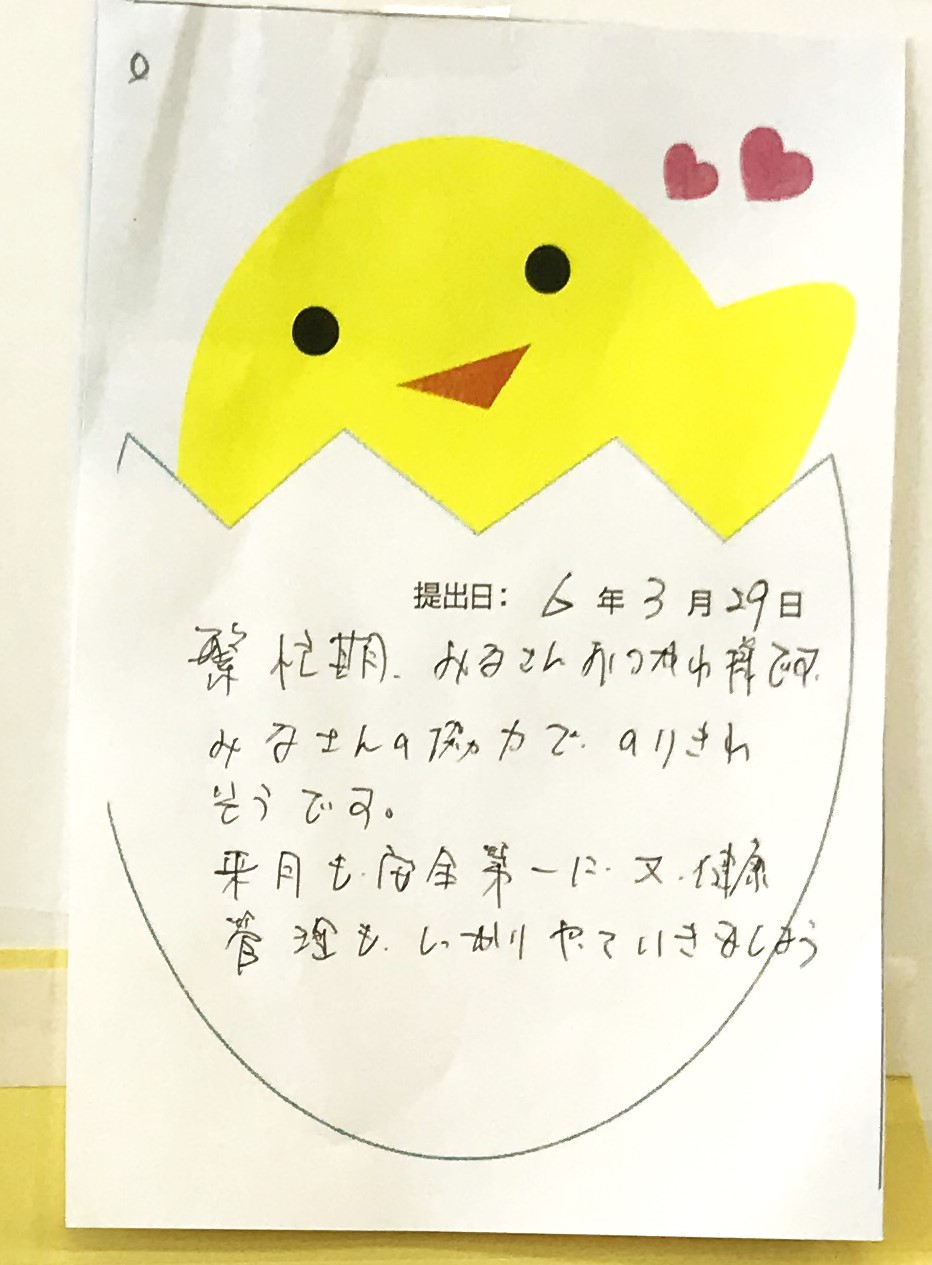 提出日: 6年3月29日
繁忙期、みなさんおつかれ様です。
みなさんの協力で、のりきれ
そうです。
来月も、安全第一に、又、健康
管理も、しっかりやっていきましょう